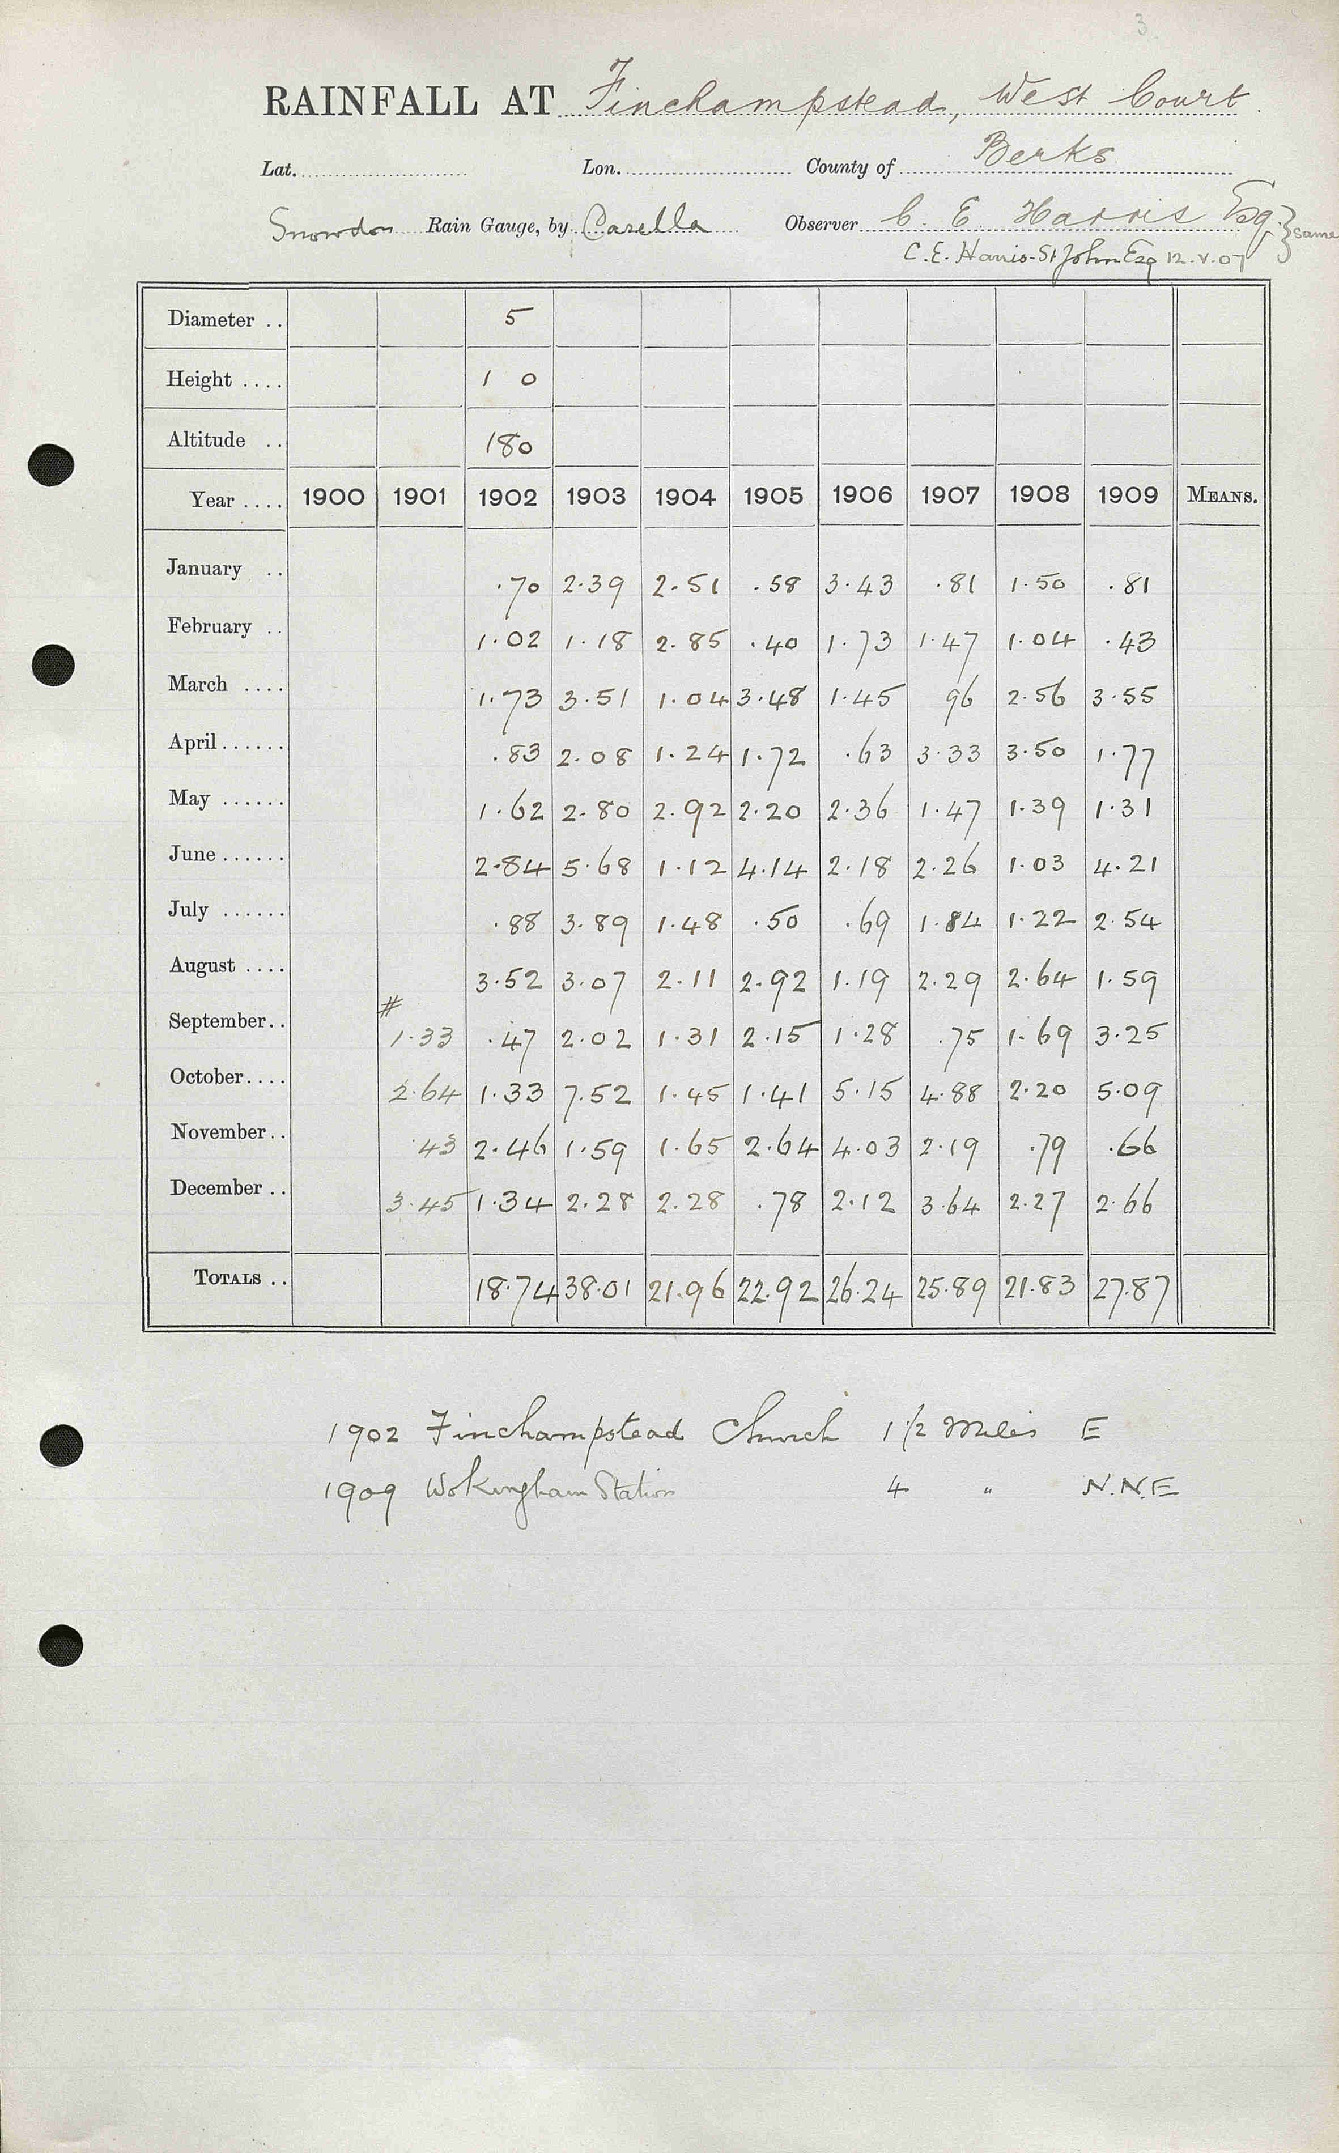 3
RAINFALL AT Finchampstead, West Court
Lat. Lon. County of Berks
Snowdon Rain Gauge, by Casella Observer C. E. Harris Esq. } same
C.E. Harris-St John Esq 12.V.07
Diameter .. 5
Height .... 1 0
Altitude .. 180
Year .... 1900 1901 1902 1903 1904 1905 1906 1907 1908 1909 MEANS.
January .. .70 2.39 2.51 .58 3.43 .81 1.50 .81
February .. 1.02 1.18 2.85 .40 1.73 1.47 1.04 .43
March .... 1.73 3.51 1.04 3.48 1.45 96 2.56 3.55
April...... .83 2.08 1.24 1.72 .63 3.33 3.50 1.77
May ...... 1.62 2.80 2.92 2.20 2.36 1.47 1.39 1.31
June...... 2.84 5.68 1.12 4.14 2.18 2.26 1.03 4.21
July ...... .88 3.89 1.48 .50 .69 1.84 1.22 2.54
August .... 3.52 3.07 2.11 2.92 1.19 2.29 2.64 1.59
September.. # 1.33 .47 2.02 1.31 2.15 1.28 .75 1.69 3.25
October.... 2.64 1.33 7.52 1.45 1.41 5.15 4.88 2.20 5.09
November.. .43 2.46 1.59 1.65 2.64 4.03 2.19 .79 .66
December .. 3.45 1.34 2.28 2.28 .78 2.12 3.64 2.27 2.66
TOTALS .. 18.74 38.01 21.96 22.92 26.24 25.89 21.83 27.87
1902 Finchampstead Church 1 1/2 Miles E
1909 Wokingham Station 4 " N.N.E